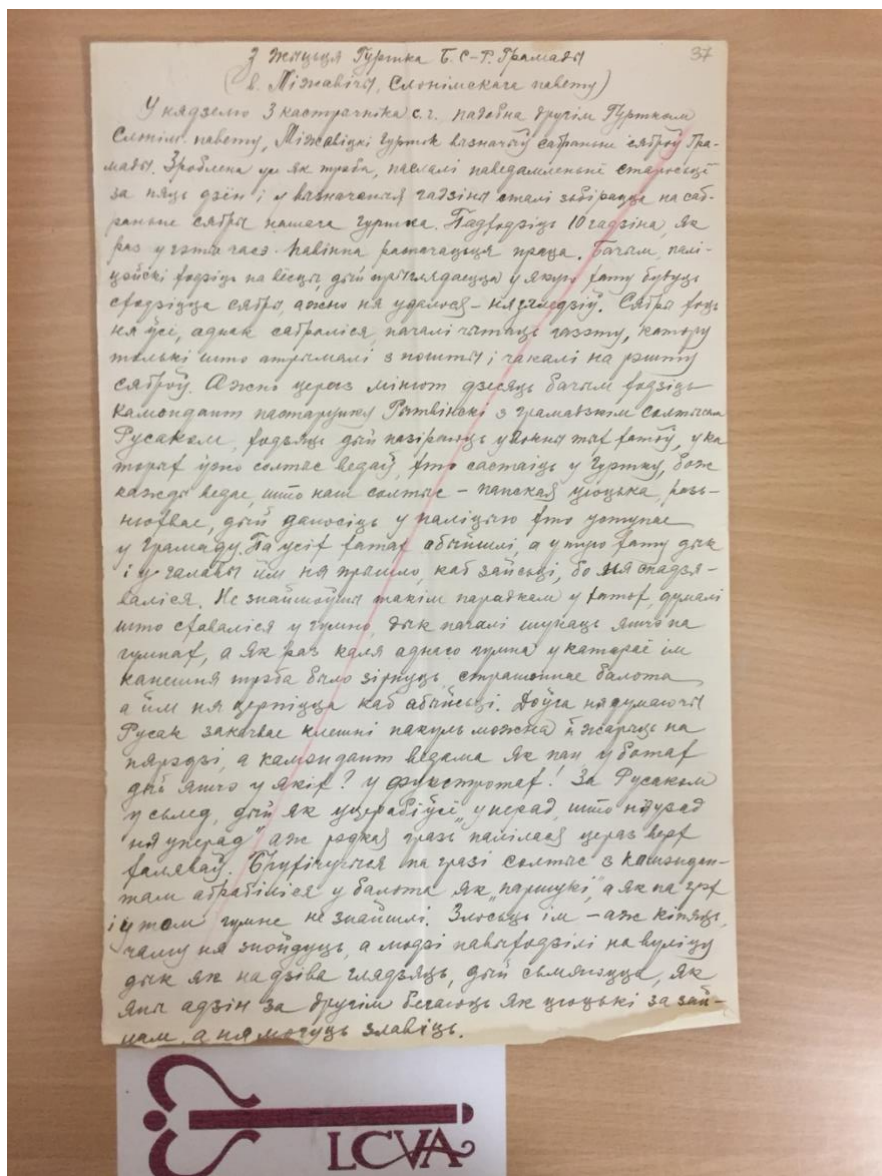 37
З жыцьця Гуртка Б. С-Р. Грамады
(в. Міжавічы, Слонімскага павету)
У нядзелю 3 кастрачніка с.г. падобна другім Гурткам
Слонім. павету, Міжавіцкі Гурток вызначыў сабраньне сяброў Гра-
мады. Зроблена ўсё як трэба, паслалі паведамленьне старосьце
за пяць дзён і у вызначаныя гадзіны сталі зьбірацца на саб-
раньне сябры нашага гуртка. Падходзіць 10 гадзіна, як
раз у гэты час павінна распачацца праца. Бачым, палі-
цэйскі ходзіць па вёсцы, дый прыглядаецца у якую хату будуць
сходзіцца сябры, ажно ня удалося – ня згледзіў. Сябры хоць
ня ўсе, аднак сабраліся, пачалі чытаць газэту, катору
толькі што атрымалі з пошты і чакалі на рэшту
сяброў. Ажно цераз мінют дзесяць бачым ходзіць
камэндант пастарунку Рытвінскі з грамадзкім солтысам
Русаком, ходзяць дый пазіраюць у вокны тых хатоў, у ка
торых ўжо солтыс ведаў, хто састаіць у Гуртку, бо ж
кажды ведае, што наш солтыс – панская цюцька, разь-
нюхвае, дый даносіць у паліцыю хто уступае
у Грамаду. Па усіх хатах абыйшлі, а у тую хату дык
і у галавы йм ня прышло, каб зайсьці, бо ня спадзя-
валіся. Не знайшоўшы такім парадкам у хатох, думалі
што схаваліся у гумно, дык пачалі шукаць яшчэ па
гумнах, а як раз каля аднаго гумна у каторае ім
канешня трэба было зірнуць страшэннае балота
а йм ня церпіцца каб абыйсьці. Доўга ня думаючы
Русак закачвае клешні пакуль можна й жарыць на
пярэдзі, а камэндант ведама як пан у ботах
дый яшчэ у якіх? у фокстротах! За Русаком
у сьлед, дый як уцерабіўся, "уперад, што ня узад
ня уперад" аж рэдкая гразь палілася цераз верх
халяваў. Боўтаючыся па гразі солтыс з камэндан-
там абрабіліся у балота як "паршукі", а як на грэх
і у том гумне не знайшлі. Злосьць ім – аж кіпяць,
чаму ня знойдуць, а людзі павыходзілі на вуліцу
дык як на дзіва глядзяць, дый сьмяюцца, як
яны адзін за другім бегаюць як цюцькі за зай-
цам, а ня могуць злавіць.
LCVA